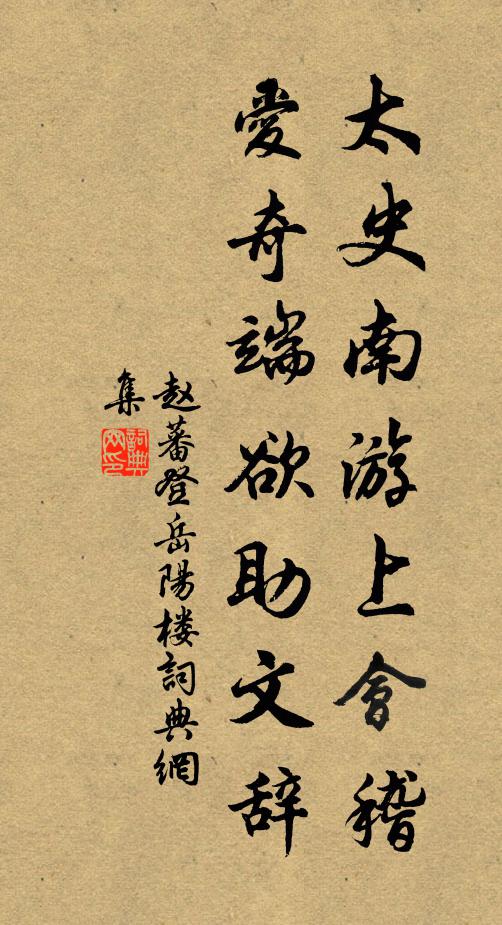 太史南游上會稽
愛奇端欲助文辞
赵蕃登岳陽楼詞典網
集
詞典网印